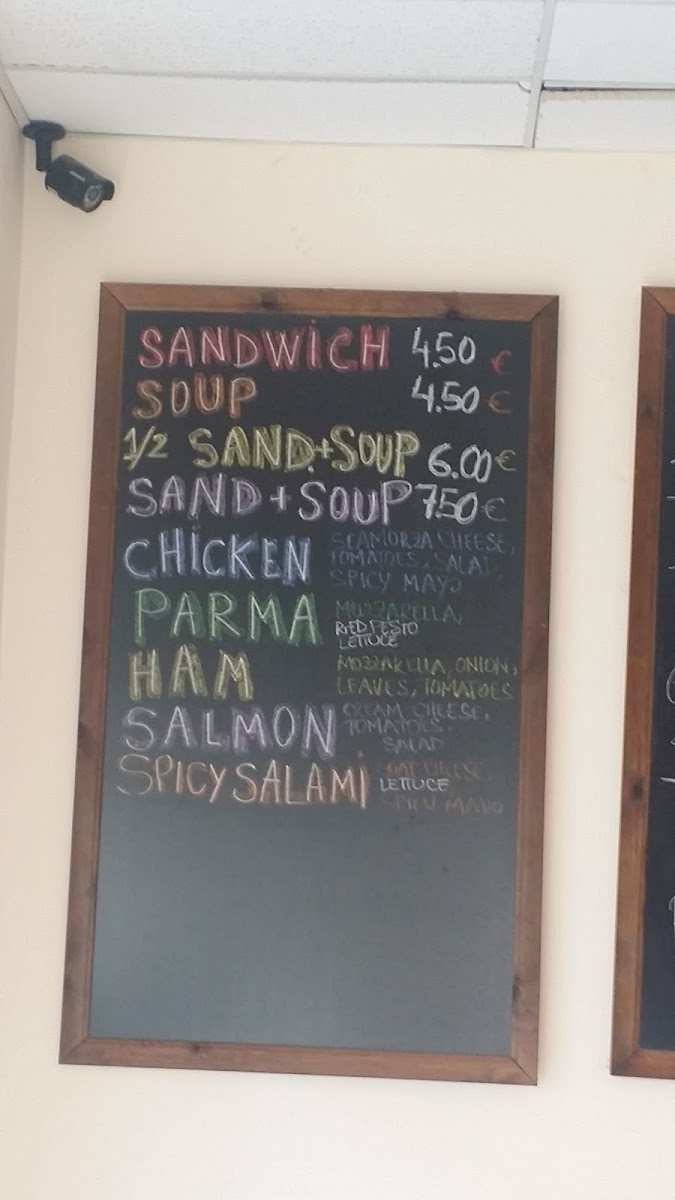 SANDWICH 4.50 €
SOUP 4.50 €
1/2 SAND.+SOUP 6.00 €
SAND+SOUP 7.50 €
CHICKEN SCAMORZA CHEESE,
TOMATOES, SALAD
SPICY MAYO
PARMA MOZZARELLA,
RED PESTO
LETTUCE
HAM MOZZARELLA, ONION,
LEAVES, TOMATOES
SALMON CREAM CHEESE,
TOMATOES.
SALAD
SPICY SALAMI CHEESE,
LETTUCE
MAYO